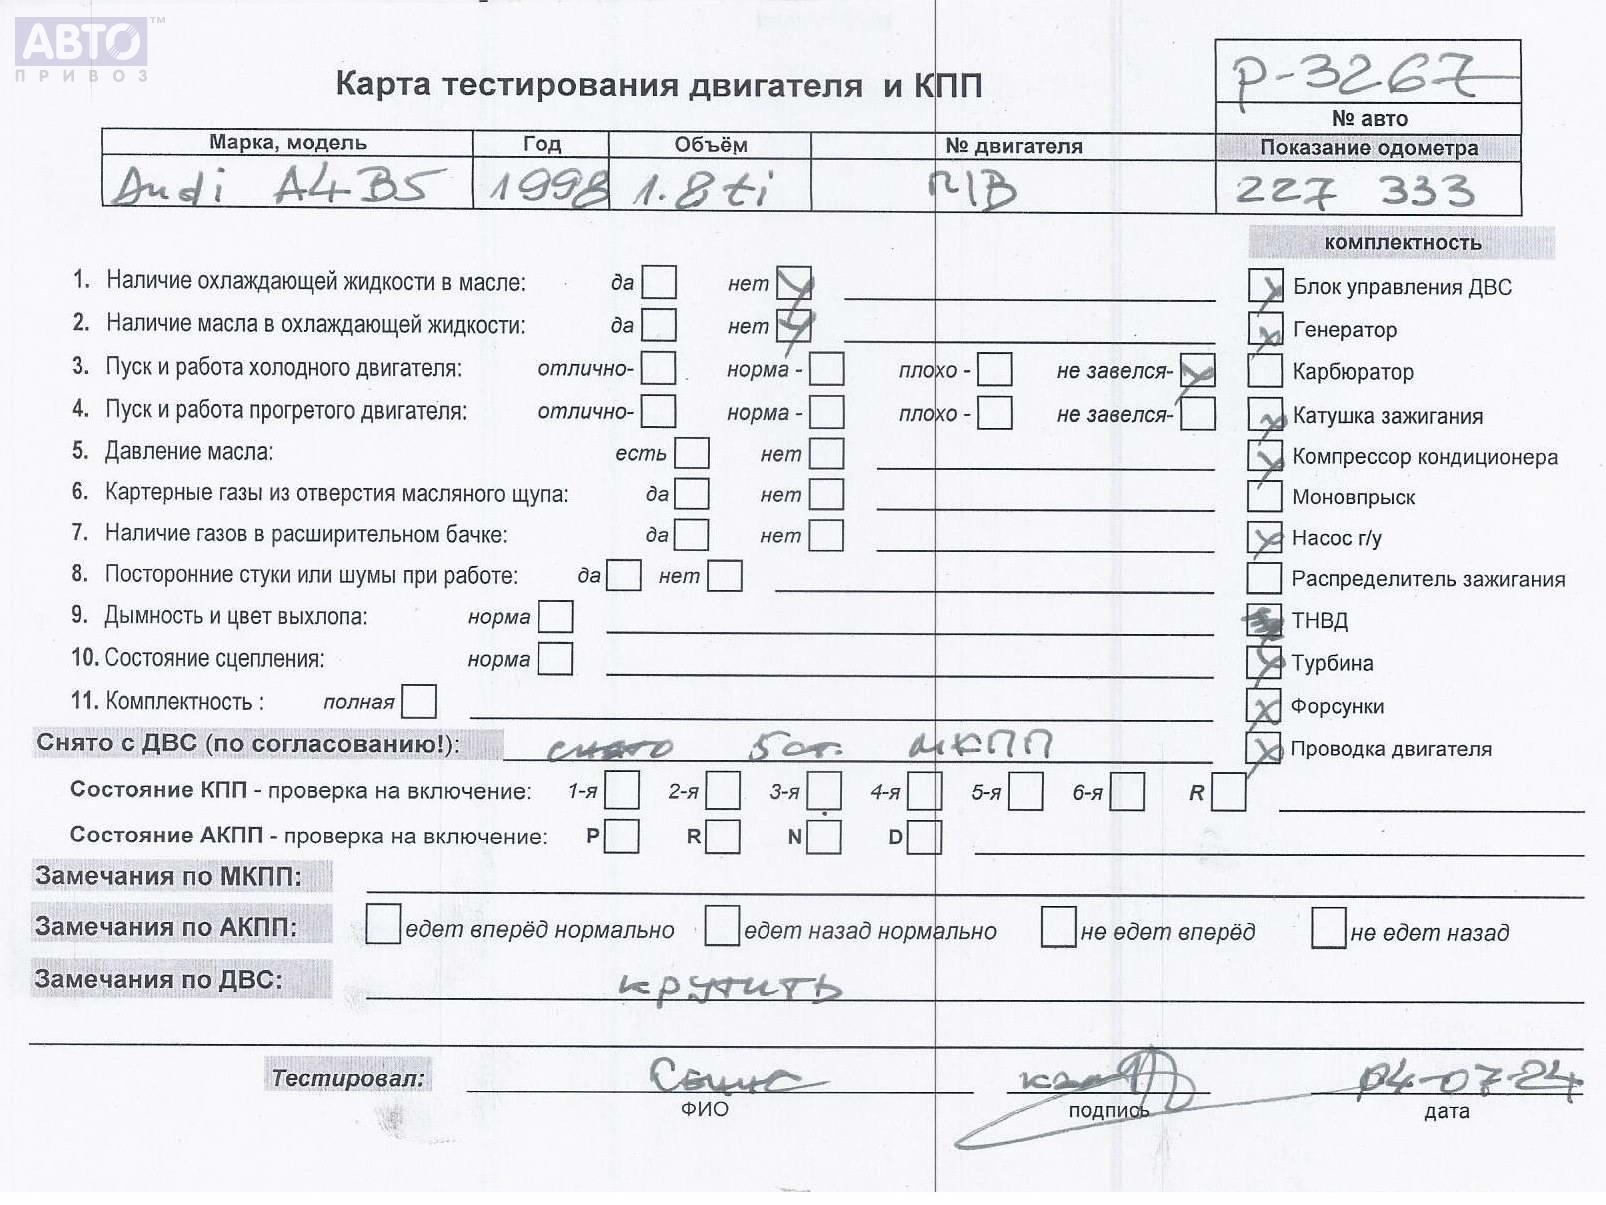 АВТО™
ПРИВОЗ
Карта тестирования двигателя и КПП
P-3267
№ авто
Марка, модель Год Объём № двигателя Показание одометра
Audi A4B5 1998 1.8ti 227 333
комплектность
1. Наличие охлаждающей жидкости в масле: да нет
Блок управления ДВС
2. Наличие масла в охлаждающей жидкости: да нет
Генератор
3. Пуск и работа холодного двигателя: отлично- норма - плохо - не завелся-
Карбюратор
4. Пуск и работа прогретого двигателя: отлично- норма - плохо - не завелся-
Катушка зажигания
5. Давление масла: есть нет
Компрессор кондиционера
6. Картерные газы из отверстия масляного щупа: да нет
Моновпрыск
7. Наличие газов в расширительном бачке: да нет
Насос г/у
8. Посторонние стуки или шумы при работе: да нет
Распределитель зажигания
9. Дымность и цвет выхлопа: норма
ТНВД
10. Состояние сцепления: норма
Турбина
11. Комплектность : полная
Форсунки
Снято с ДВС (по согласованию!): снято 5ст. МКПП
Проводка двигателя
Состояние КПП - проверка на включение: 1-я 2-я 3-я 4-я 5-я 6-я R
Состояние АКПП - проверка на включение: P R N D
Замечания по МКПП:
Замечания по АКПП: едет вперёд нормально едет назад нормально не едет вперёд не едет назад
Замечания по ДВС: крутить
Тестировал: 04-07-24
ФИО подпись дата